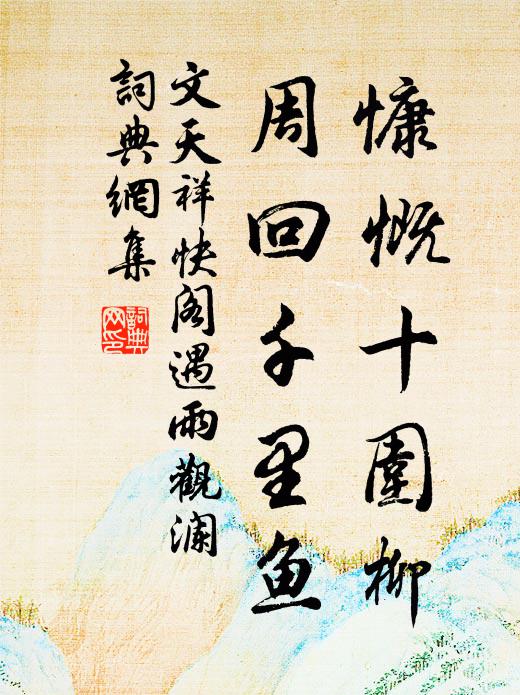 慷慨十圍柳
周回千里鱼
文天祥快阁遇雨觀澜
詞典網集
詞典
网印